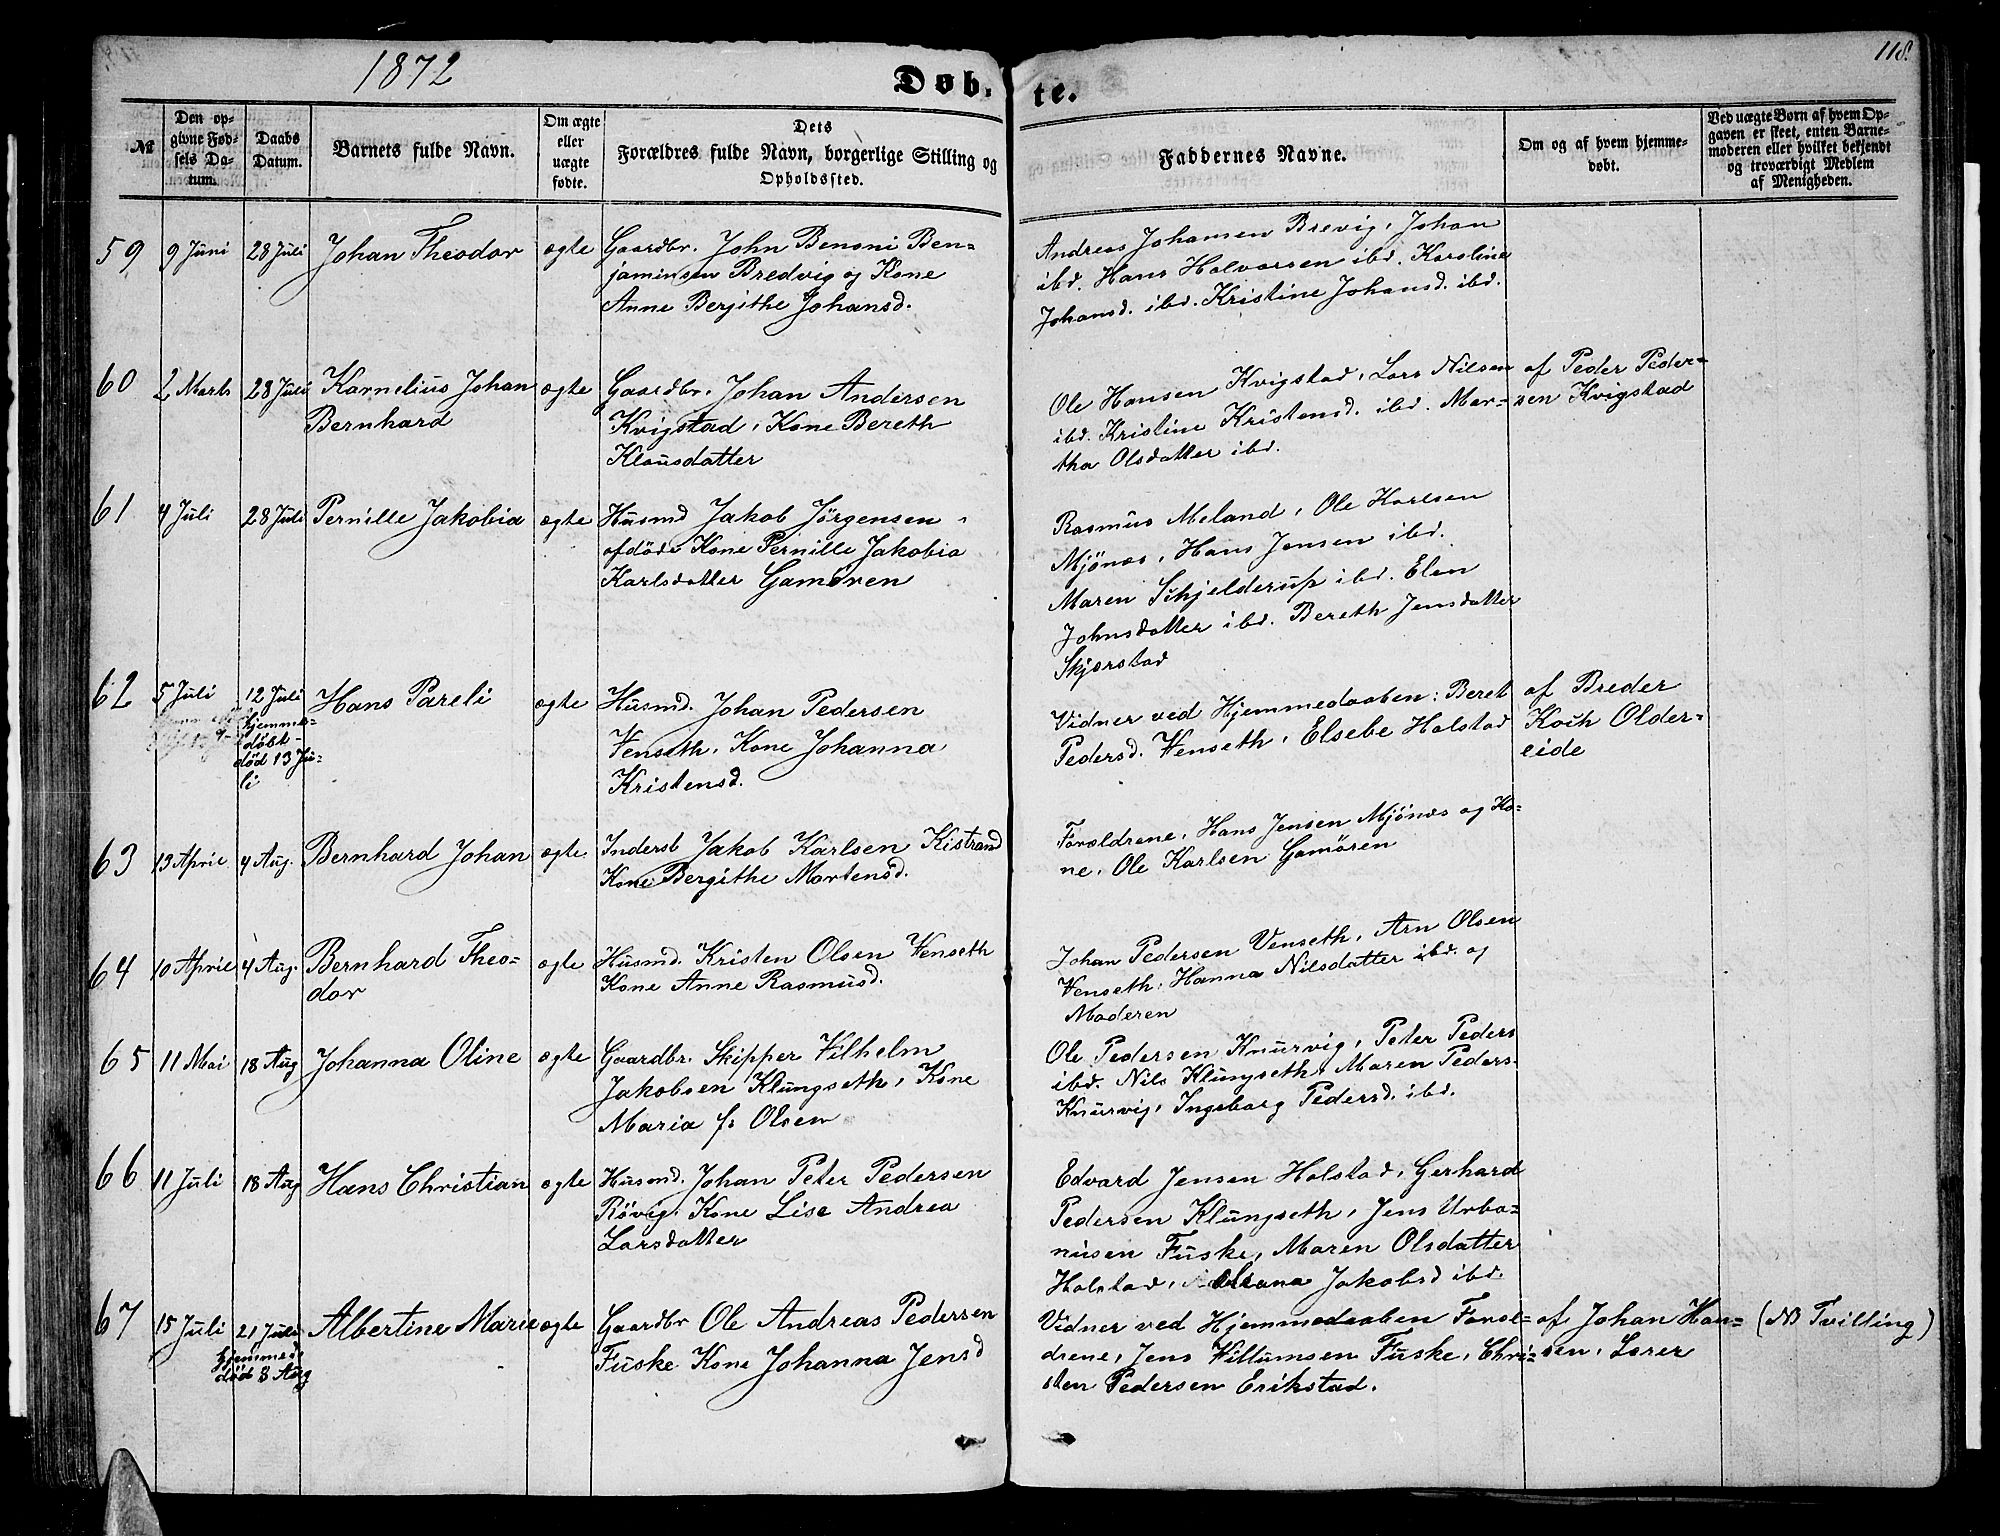 1872
Døb-
te.
118.
№
Den op-
givne Fød-
sels Da-
tum.
Daabs
Datum.
Barnets fulde Navn.
Om ægte
eller
uægte
fødte.
Dets
Forældres fulde Navn, borgerlige Stilling og
Opholdssted.
Faddernes Navne.
Om og af hvem hjemme-
døbt.
Ved uægte Børn af hvem Op-
gaven er skeet, enten Barne-
moderen eller hvilket bekjendt
og troværdigt Medlem
af Menigheden.
59
9 Juni
28 Juli
Johan Theodor
ægte
Gaardbr. John Benoni Ben=
jaminsen Bredvig og Kone
Anne Bergithe Johansd.
Andreas Johansen Brevig, Johan
ibd. Hans Halvorsen ibd. Karoline
Johansd. ibd. Kristine Johansd. ibd.
60
2 Marts
28 Juli
Kornelius Johan
Bernhard
ægte
Gaardbr. Johan Andersen
Kvigstad, Kone Bereth
Klausdatter
Ole Hansen Kvigstad, Lars Nilsen
ibd. Kristine Kristensd. ibd. Mar-
tha Olsdatter ibd.
af Peder Peder=
sen Kvigstad
61
4 Juli
28 Juli
Pernille Jakobia
ægte
Husmd Jakob Jörgensen
afdöde Kone Pernille Jakobia
Karlsdatter Gamören
Rasmus Meland, Ole Karlsen
Mjönæs, Hans Jensen ibd.
Maren Schjelderup ibd. Elen
Johnsdatter ibd. Bereth Jensdatter
Skjerstad
62
5 Juli
12 Juli
hjemme-
döbt-
död 13 Ju-
li
Hans Pareli
ægte
Husmd. Johan Pedersen
Venseth, Kone Johanna
Kristensd.
Vidner ved Hjemmedaaben: Beret
Pedersd. Venseth, Elsebe Halstad
af Breder
Koch Older-
eide
63
13 April
4 Aug.
Bernhard Johan
ægte
Inderst Jakob Karlsen Kistrand
Kone Bergithe Mortensd.
Forældrene, Hans Jensen Mjönæs og Ko-
ne, Ole Karlsen Gamören
64
10 April
4 Aug.
Bernhard Theo-
dor
ægte
Husmd. Kristen Olsen Venseth
Kone Anne Rasmusd.
Johan Pedersen Venseth, Arn Olsen
Venseth, Hanna Nilsdatter ibd. og
Moderen
65
11 Mai
18 Aug
Johanna Oline
ægte
Gaardbr. Skipper Vilhelm
Jakobsen Klungseth, Kone
Maria f. Olsen
Ole Pedersen Knurvig, Peter Peders
ibd. Nils Klungseth, Maren Peders.
Knurvig, Ingeborg Pedersd. ibd.
66
11 Juli
18 Aug
Hans Christian
ægte
Husmd. Johan Peter Pedersen
Rövig. Kone Lise Andrea
Larsdatter
Edvard Jensen Halstad, Gerhard
Pedersen Klungseth, Jens Urba-
nusen Fuske, Maren Olsdatter
Halstad, Jakobsd ibd.
67
15 Juli
21 Juli
hjemmed.
död 3 Aug
Albertine Marie
ægte
Gaardbr Ole Andreas Pedersen
Fuske Kone Johanna Jensd
Vidner ved Hjemmedaaben Foræl-
drene, Jens Villumsen Fuske, Chri-
sten Pedersen Erikstad.
af Johan Han-
sen, Lærer
(NB Tvilling)